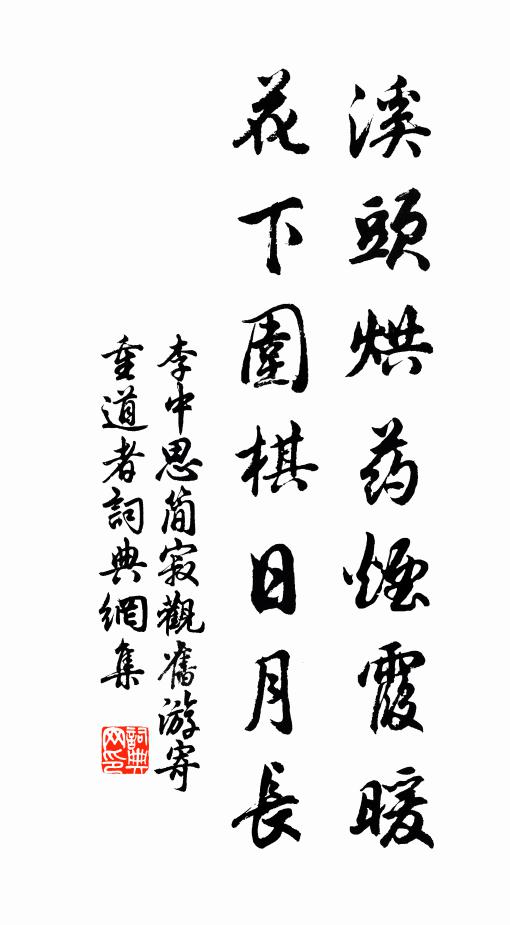 溪頭烘药煙霞暖
花下圍棋日月長
李中思簡寂觀舊游寄
重道者詞典網集
詞典网印